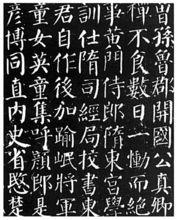 曾孫魯郡開國公真卿
禪不食數日一慟而絕
事黃門侍郎隋東宮學
訓仕隋司經局校書東
君自作後加踰岷將軍
童女英童集呼顏郎是
彥博同直内史省愍楚